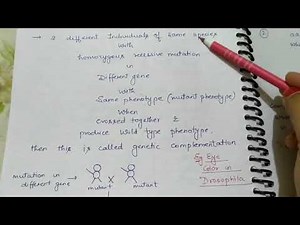 → 2 different Individuals of same species
with
homozygous recessive mutation
in
Different gene
with
Same phenotype (mutant phenotype)
When
Crossed together &
produce Wild type phenotype.
then this is called genetic complementation
Eg Eye
Color in
Drosophila
mutation in →
different gene
X
mutant
mutant